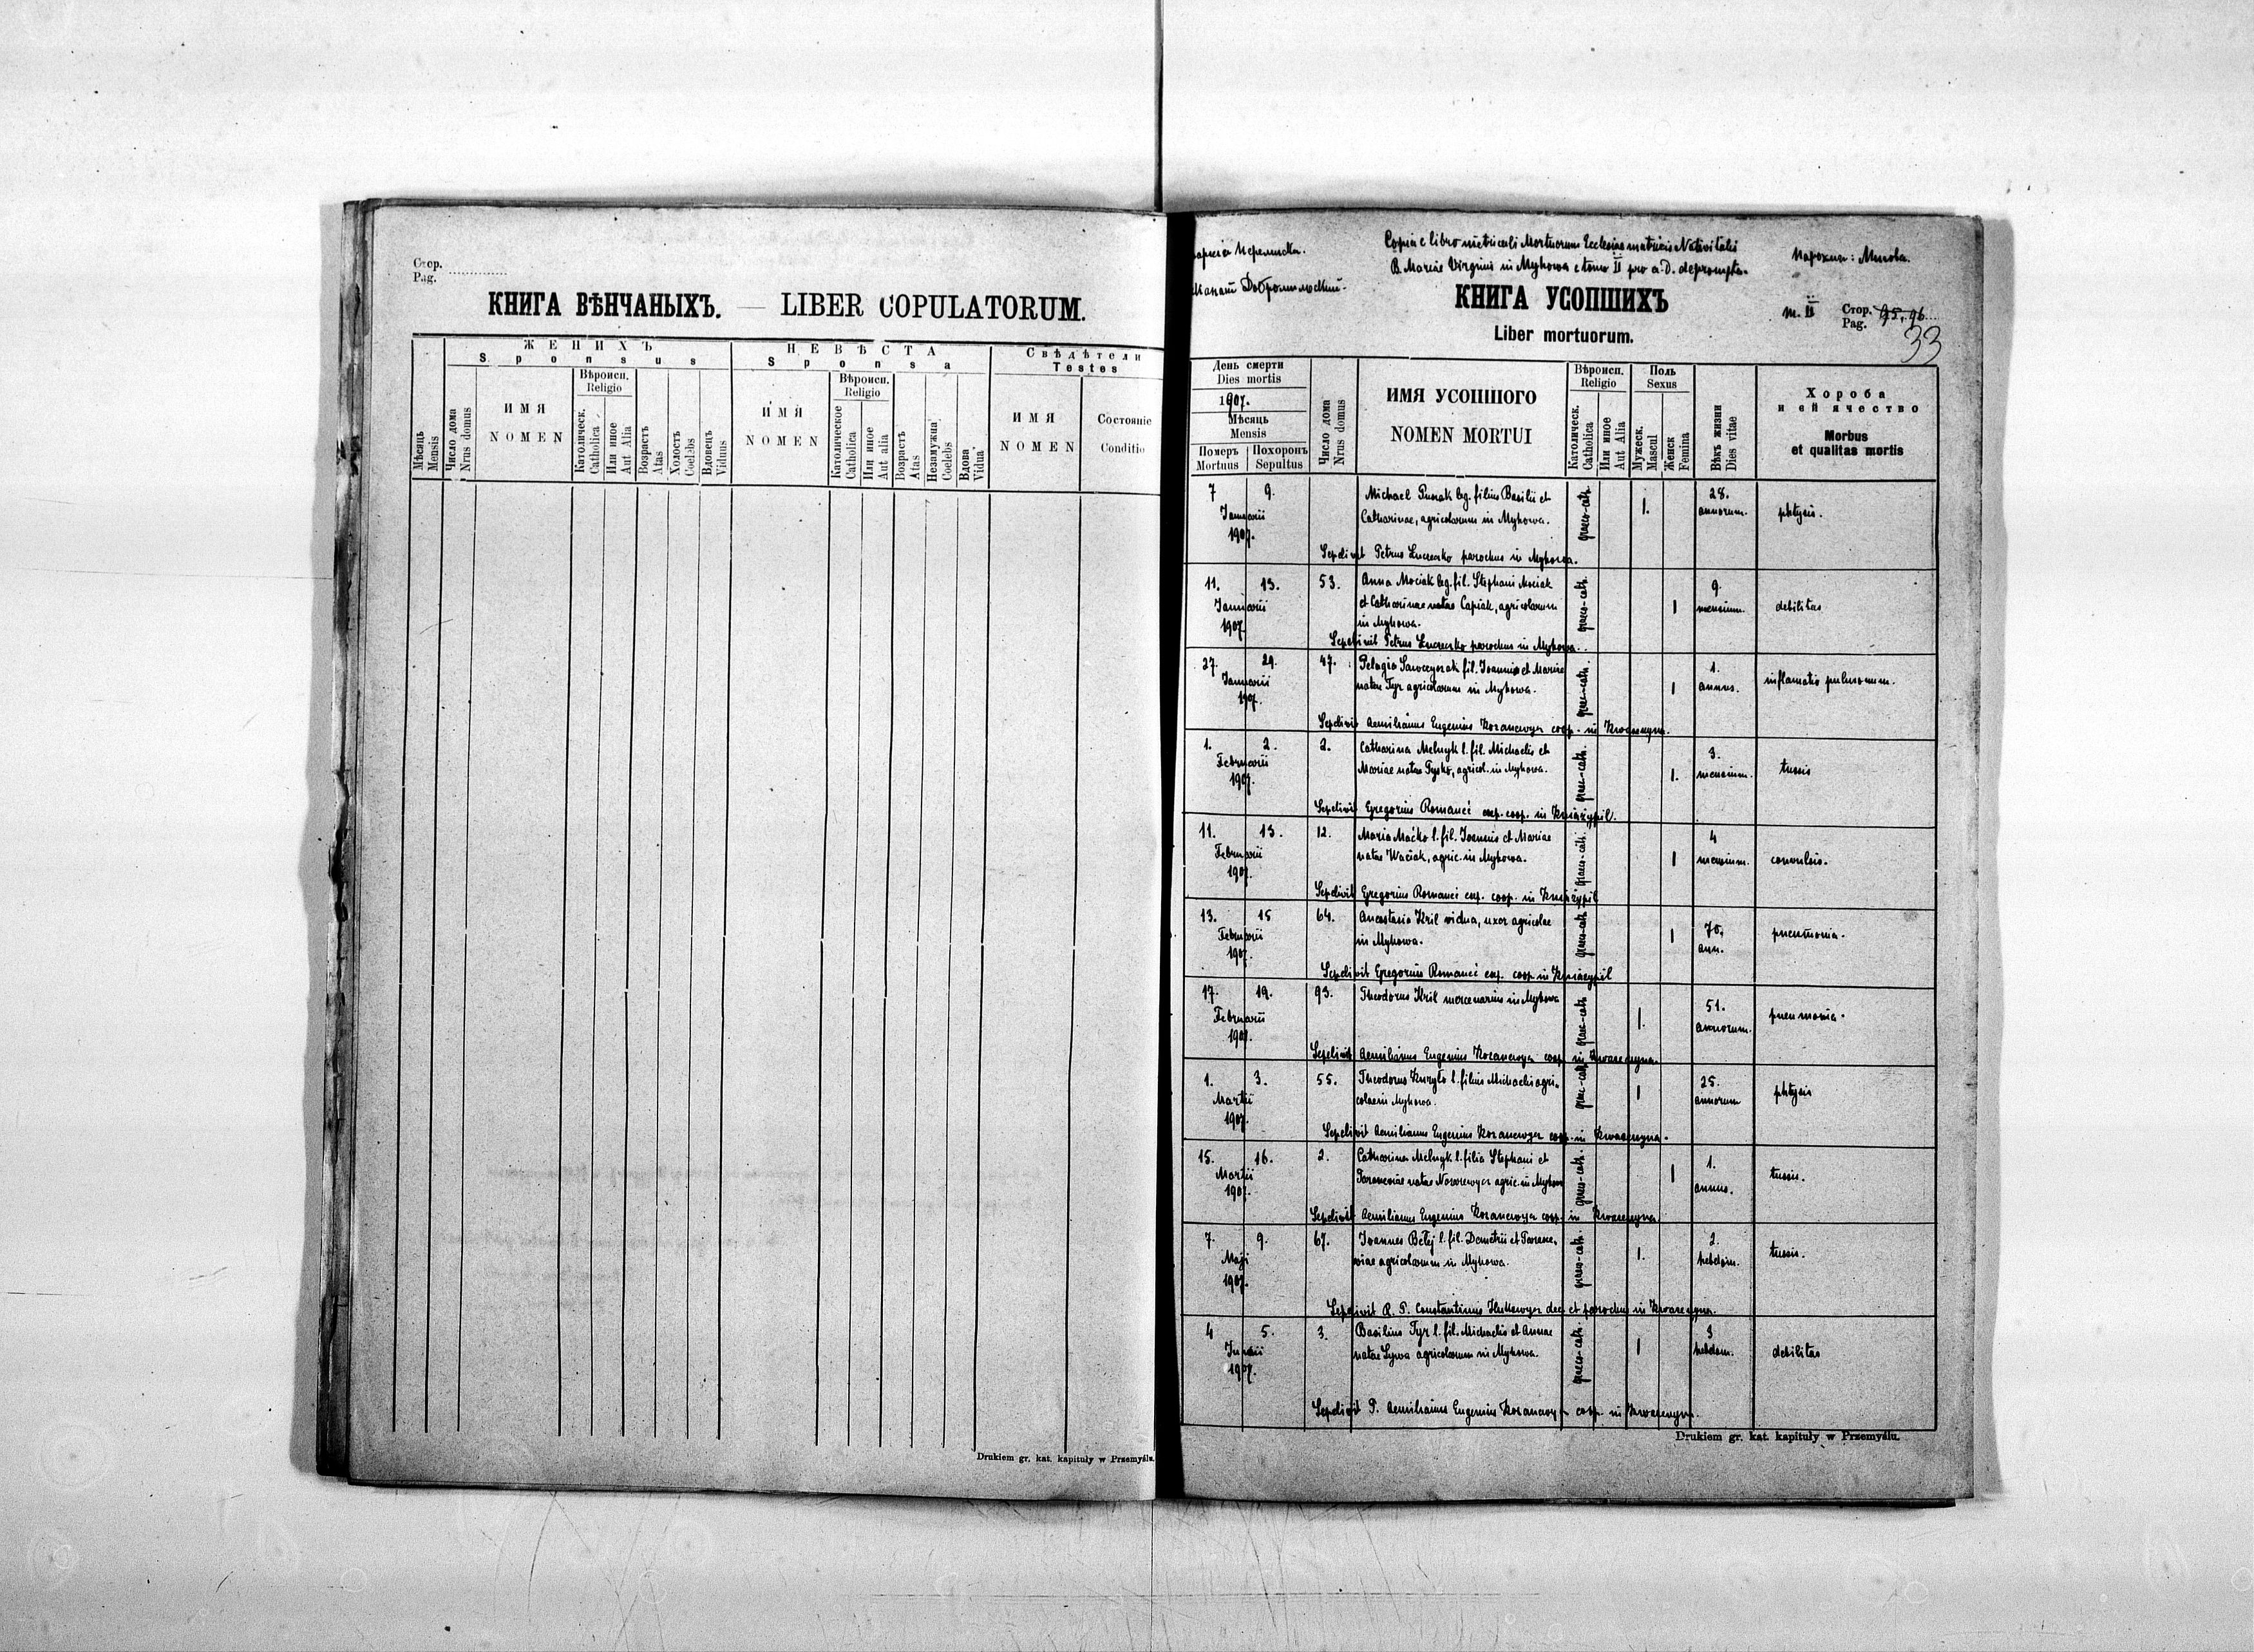 Стор.
Pag.
КНИГА ВѢНЧАНЫХЪ. — LIBER COPULATORUM.
ЖЕНИХЪ
Sponsus
НЕВѢСТА
Sponsa
Свѣдѣтели
Testes
Мѣсяць
Mensis
Число дома
Nrus domus
ИМЯ
NOMEN
Вѣроисп.
Religio
Католическ.
Catholica
Или иное
Aut Alia
Возрастъ
Atas
Холостъ
Coelebs
Вдовецъ
Viduus
ИМЯ
NOMEN
Вѣроисп.
Religio
Католическое
Catholica
Или иное
Aut alia
Возрастъ
Atas
Незамужна
Coelebs
Вдова
Vidua
ИМЯ
NOMEN
Состояніе
Conditio
Drukiem gr. kat. kapituły w Przemyślu.
Copia e libro metricali Mortuorum Ecclesiae matricis Nativitatis
B. Mariae Virginis in Myhowa e tomo II pro a. D. deprompta.
Парохия: Мигова.
КНИГА УСОПШИХЪ
Liber mortuorum.
т. II Стор. 95, 96
Pag.
33
День смерти
Dies mortis
1907.
Мѣсяць
Mensis
Померъ
Mortuus
Похоронъ
Sepultus
Число дома
Nrus domus
ИМЯ УСОПШОГО
NOMEN MORTUI
Вѣроисп.
Religio
Католическ.
Catholica
Или иное
Aut Alia
Поль
Sexus
Мужеск.
Mascul
Женск
Femina
Вѣкъ жизни
Dies vitae
Хороба
и ей ячество
Morbus
et qualitas mortis
7 9. Michael Pusak leg. filius Basilii et 28.
Januarii Catharinae, agricolarum in Myhowa. graeco-cath. 1. annorum. phtysis.
1907.
Sepelivit Petrus parochus in Myhowa.
11. 13. 53. Anna Mociak leg. fil. Stephani Mociak 9.
Januarii et Catharinae natae Capiak, agricolarum graeco-cath. 1 mensium. debilitas
1907 in Myhowa.
Sepelivit Petrus parochus in Myhowa.
27. 29. 47. Pelagia fil. Joannis et Mariae 1.
Januarii natae Tyr agricolarum in Myhowa. graeco-cath. 1 annus. inflamatio pulmonum.
1907.
Sepelivit Aemilianus Eugenius Kozanewycz coop. in Kwaszenyna.
1. 2. 2. Catharina Melnyk l. fil. Michaelis et 3.
Februarii Mariae natae agricol. in Myhowa. graeco-cath. 1. mensium. tussis
1907.
Sepelivit Gregorius Romaneć exp. coop. in
11. 13. 12. Maria Maćko l. fil. Joannis et Mariae 4
Februarii natae Waciak, agric. in Myhowa. graeco-cath. 1 mensium. convulsio.
1907.
Sepelivit Gregorius Romaneć exp. coop. in
13. 15 64. Anastasia Kril vidua, uxor agricolae 70.
Februarii in Myhowa. graeco-cath. 1 ann. pneumonia.
1907.
Sepelivit Gregorius Romaneć exp. coop. in
17. 19. 93. Theodorus Kril mercenarius in Myhowa 51.
Februarii graeco-cath. 1. annorum. pneumonia.
1907.
Sepelivit Aemilianus Eugenius Kozanewycz coop. in Kwaszenyna.
1. 3. 55. Theodorus Kuryło l. filius Michaelis agri- 25.
Martii colae in Myhowa. graeco-cath. 1 annorum phtysis
1907.
Sepelivit Aemilianus Eugenius Kozanewycz coop. in Kwaszenyna.
15. 16. 2. Catharina Melnyk l. filia Stephani et 1.
Martii natae agric. in Myhowa graeco-cath. 1 annus. tussis.
1907.
Sepelivit Aemilianus Eugenius Kozanewycz coop. in Kwaszenyna
7. 9. 67. Joannes Bełej l. fil. Demetrii et Parasce- 2.
Maji viae agricolarum in Myhowa. graeco-cath. 1. hebdom. tussis.
1907.
Sepelivit R. P. Constantinus dec. et parochus in Kwaszenyna.
4 5. 3. Basilius Tyr l. fil. Michaelis et Annae 3
Junii natae agricolarum in Myhowa. graeco-cath. 1 hebdom. debilitas
1907.
Sepelivit P. Aemilianus Eugenius Kozanewycz coop. in Kwaszenyna.
Drukiem gr. kat. kapituły w Przemyślu.